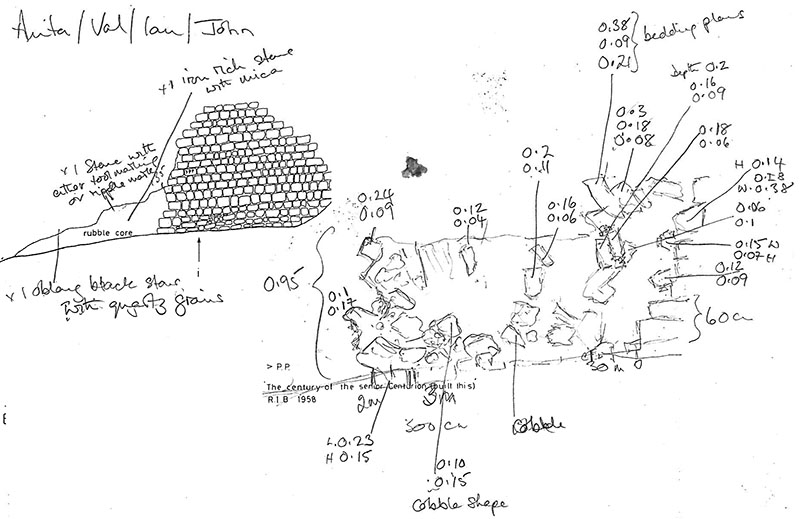 Anita/Val/Ian/John
x1 iron rich stone
with mica
x 1 Stone with
either tool marking
or ripple marks
rubble core
x 1 oblong black stone
with quartz grains
0.38
0.09
0.21
bedding plans
Depth 0.2
0.16
0.09
0.3
0.18
0.08
0.18
0.06
H 0.14
0.18
W. 0.38
0.06
0.1
0.15 W
0.07 H
0.12
0.09
60cm
0.2
0.11
0.16
0.06
0.12
0.04
0.24
0.09
0.95
0.1
0.17
> P.P.
The century of the senior Centurion (built this)
R.I.B 1958
2m
3m
30 m
300 cm
Cobble
L.0.23
H 0.15
0.10
0.15
Cobble Shape